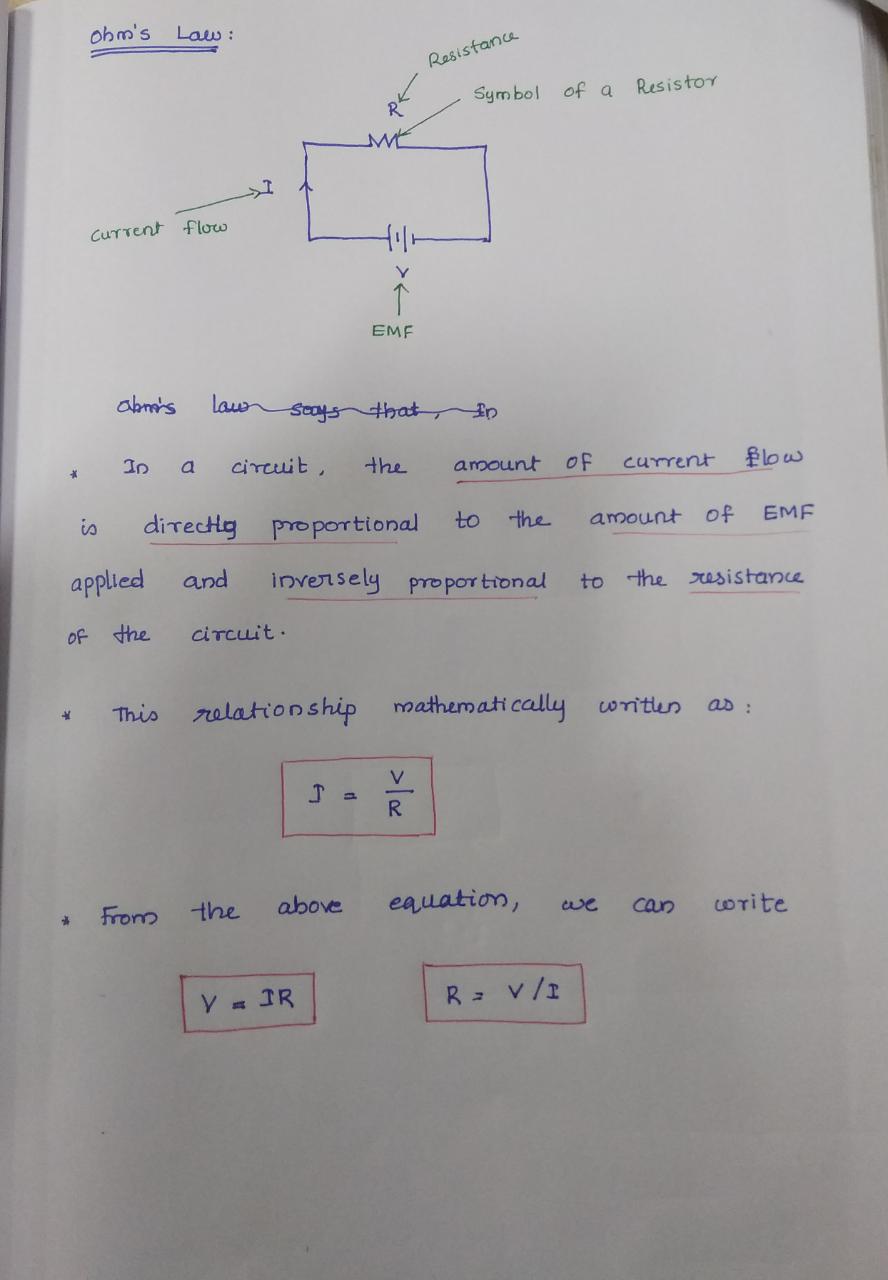 Ohm's Law:
Resistance
R
Symbol of a Resistor
I
Current flow
V
EMF
ohm's law says that, In
* In a circuit, the amount of current flow
is directly proportional to the amount of EMF
applied and inversely proportional to the resistance
of the circuit.
* This relationship mathematically written as:
I = V/R
* From the above equation, we can write
V = IR
R = V/I